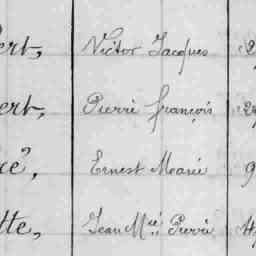 ert, Victor Jacques 2
ert, Pierre François 2
re, Ernest Marie 9
tte, Jean Mie Pierre 4